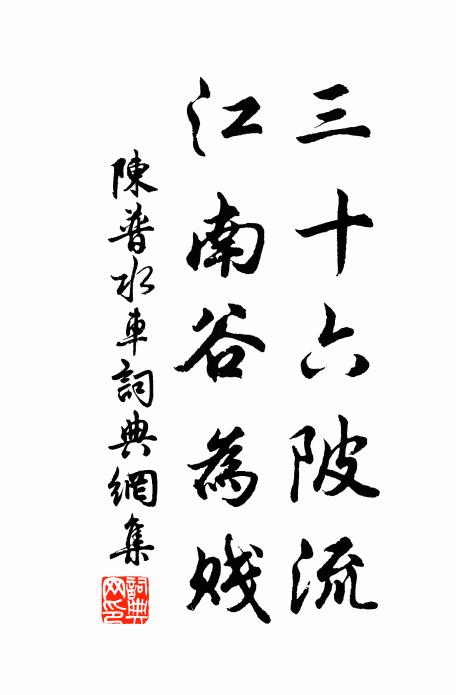 三十六陂流
江南谷為賤
陳普水車詞典網集
詞典
网印